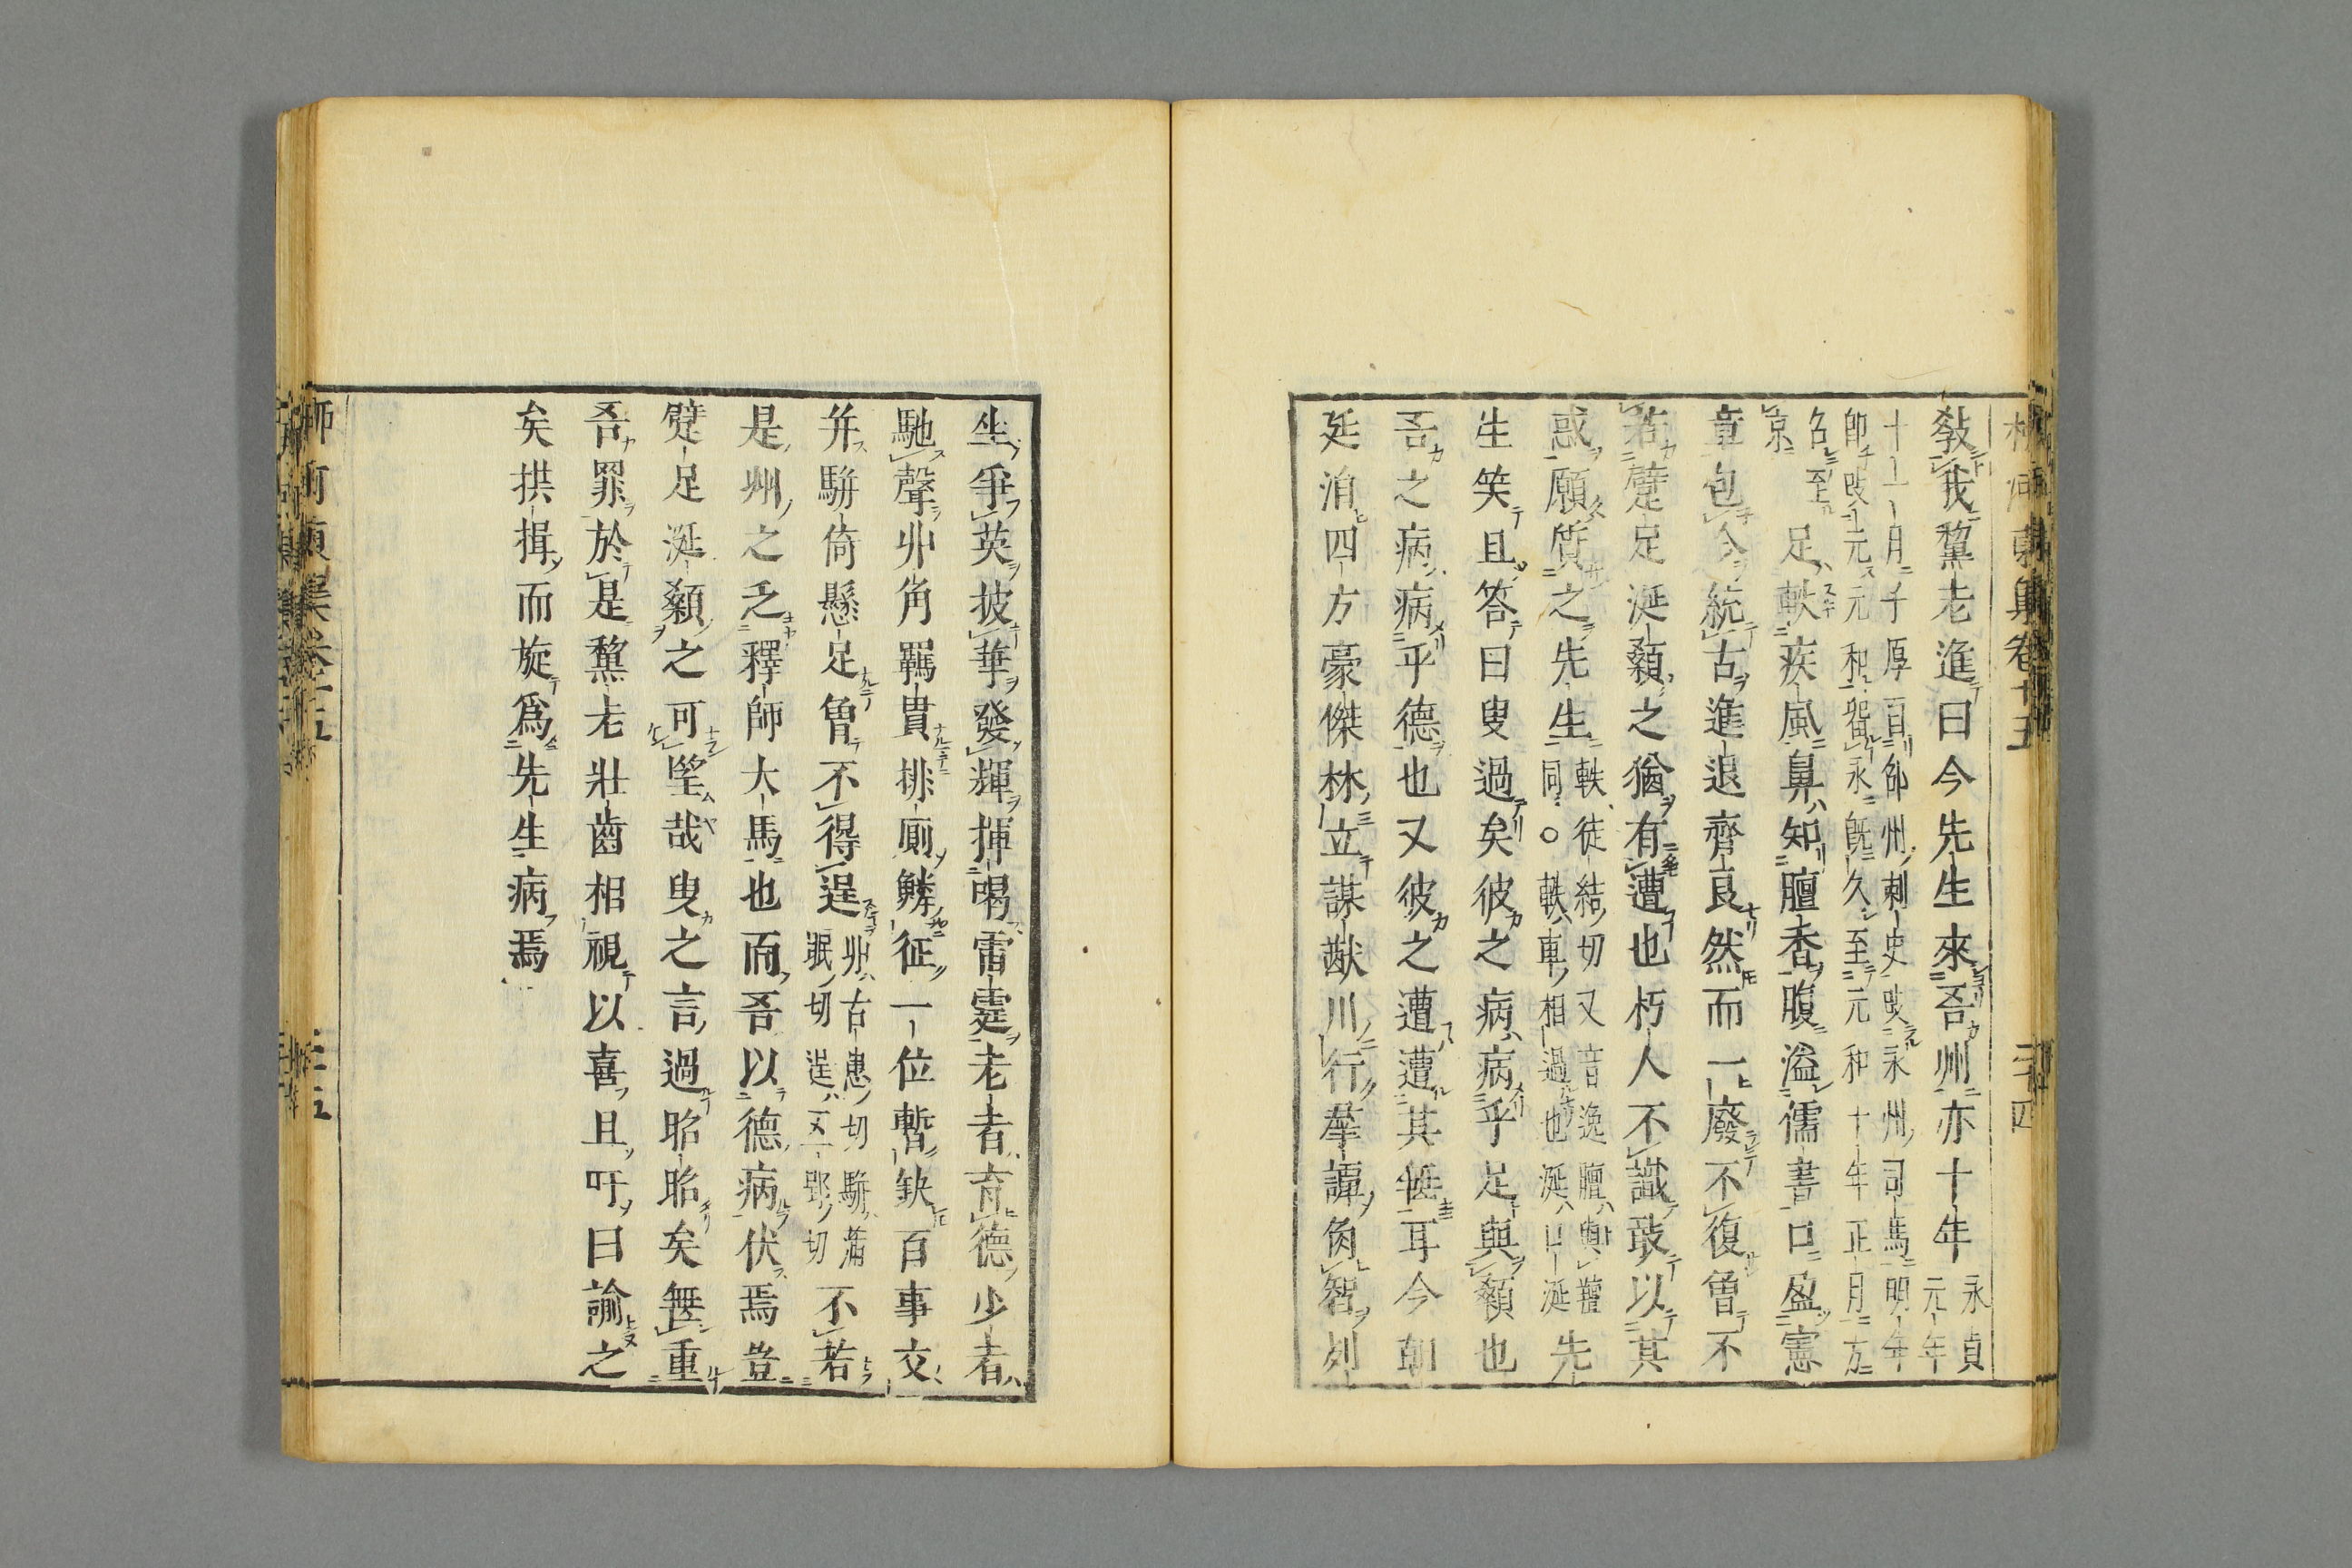 敎我黧老進曰今先生來吾州亦十年永貞
元年
十一月子厚自邵州刺史貶永州司馬明年
即改元元和留永既久至元和十年正月方
召至
京
足軼疾風鼻知膻香腹溢儒書口盈憲
章包今統古進退齊良然而一廢不復曾不
若躄足涎顙之猶有遭也朽人不識敢以其
惑願質之先生軼徒結切又音逸膻與羶
同○軼車相過也涎口涎先
生笑且答曰叟過矣彼之病病乎足與顙也
吾之病病乎德也又彼之遭遭其無耳今朝
廷洎四方豪傑林立謀猷川行羣談角智列
坐爭英披華發輝揮喝雷霆老者育德少者
馳聲丱角羈貫排廁鱗征一位暫缺百事交
并駢倚懸足曾不得逞丱古患切駢蒲
眠切逞丑郢切不若
是州之乏釋師大馬也而吾以德病伏焉豈
躄足涎顙之可望哉叟之言過昭昭矣無重
吾罪於是黧老壯齒相視以喜且吁曰諭之
矣拱揖而旋爲先生病焉